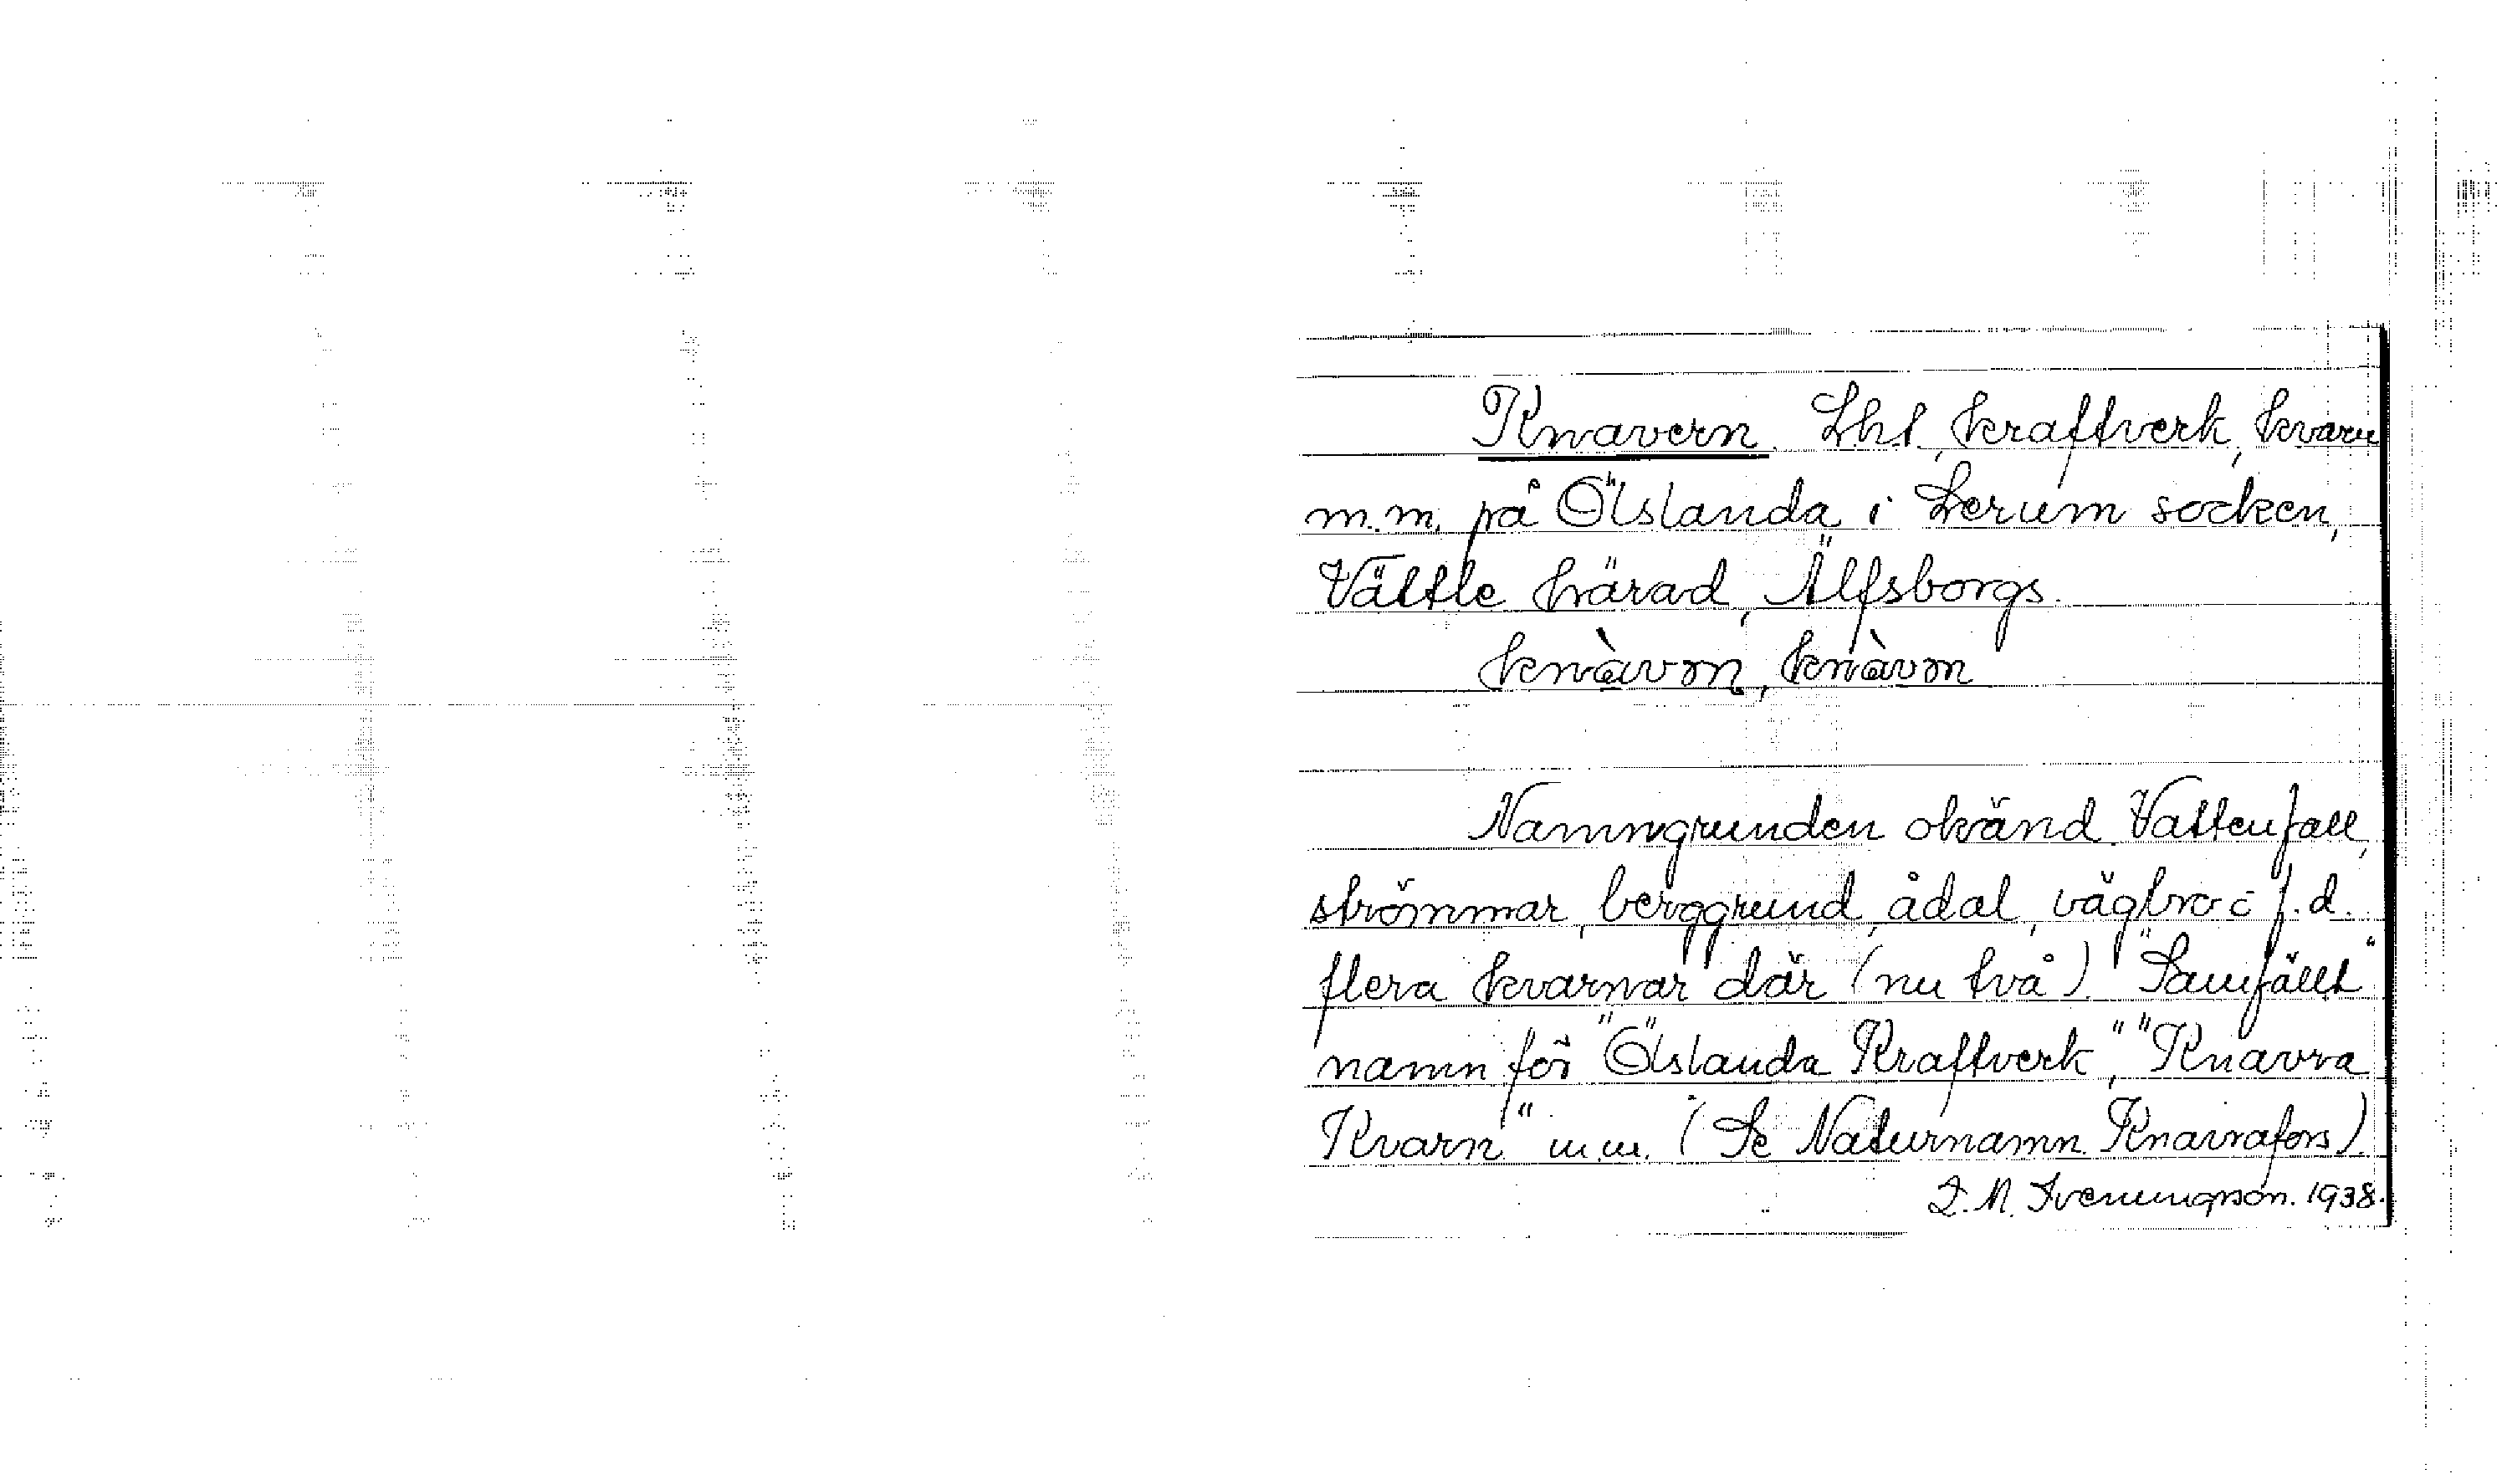 Knavern. Lht, kraftverk, kvarn
m.m. på Öslanda i Lerum socken,
Vättle härad, Älfsborgs.
knàvm, knàvm
Namngrunden okänd. Vattenfall,
strömmar, berggrund, ådal, vägbro o f.d.
flera kvarnar där (nu två). "Samfällt"
namn för "Öslanda Kraftverk", "Knavra
Kvarn" m.m. (Se Naturnamn. Knavrafors).
1938.